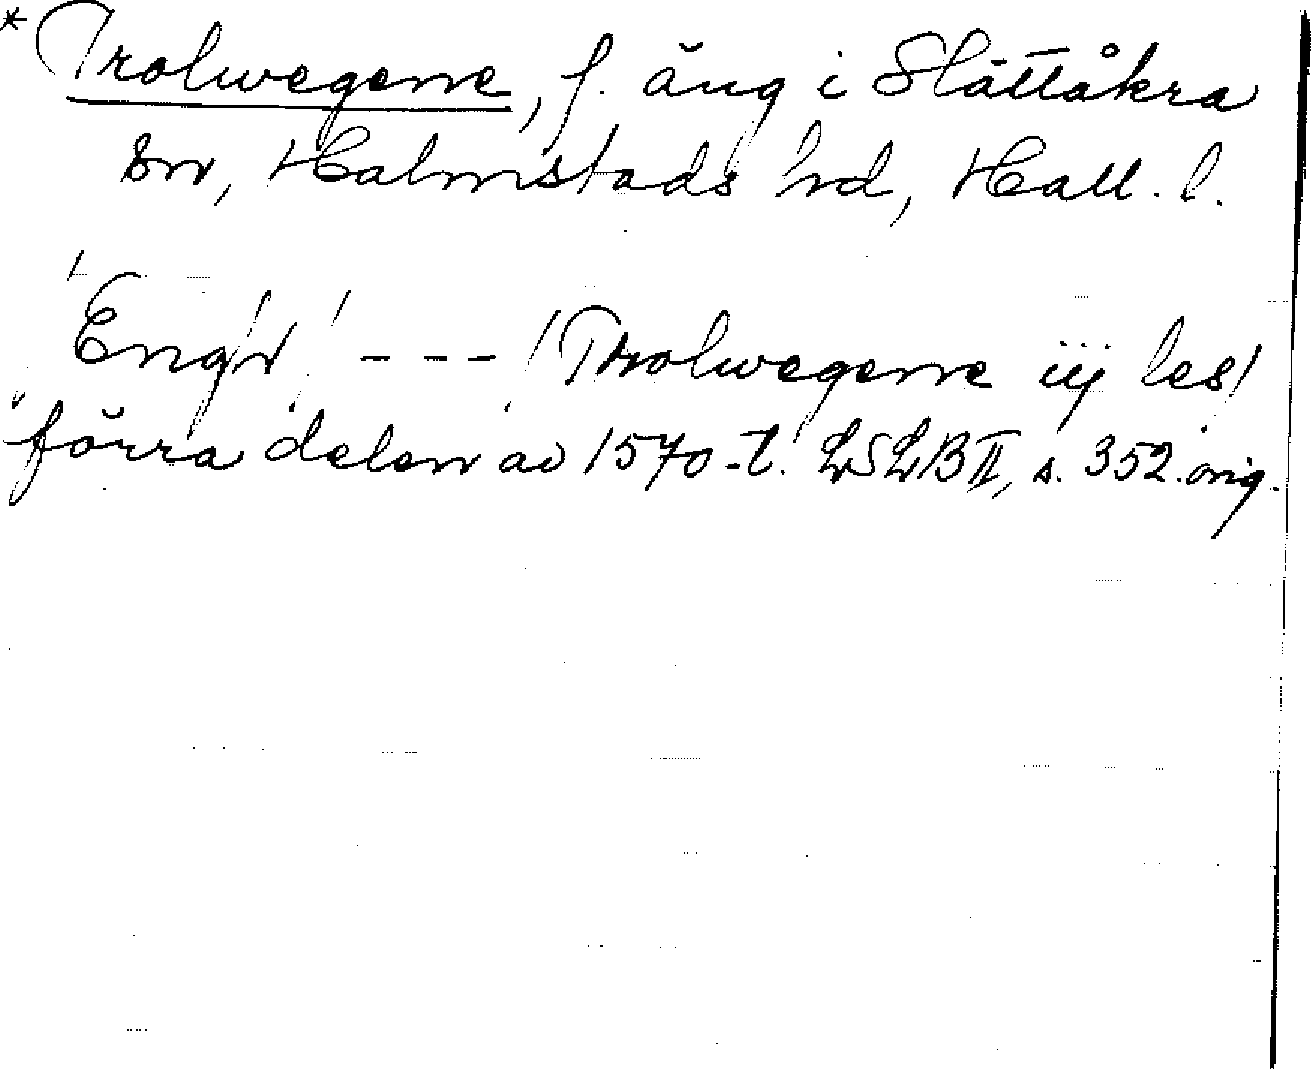 *Trolwegene, f. äng i Slättåkra
sn, Halmstads hd, Hall. l.
Eng/r/ --- /Trolwegene iij les/
förra delen av 1570-t. LSLB II, s. 352. orig.